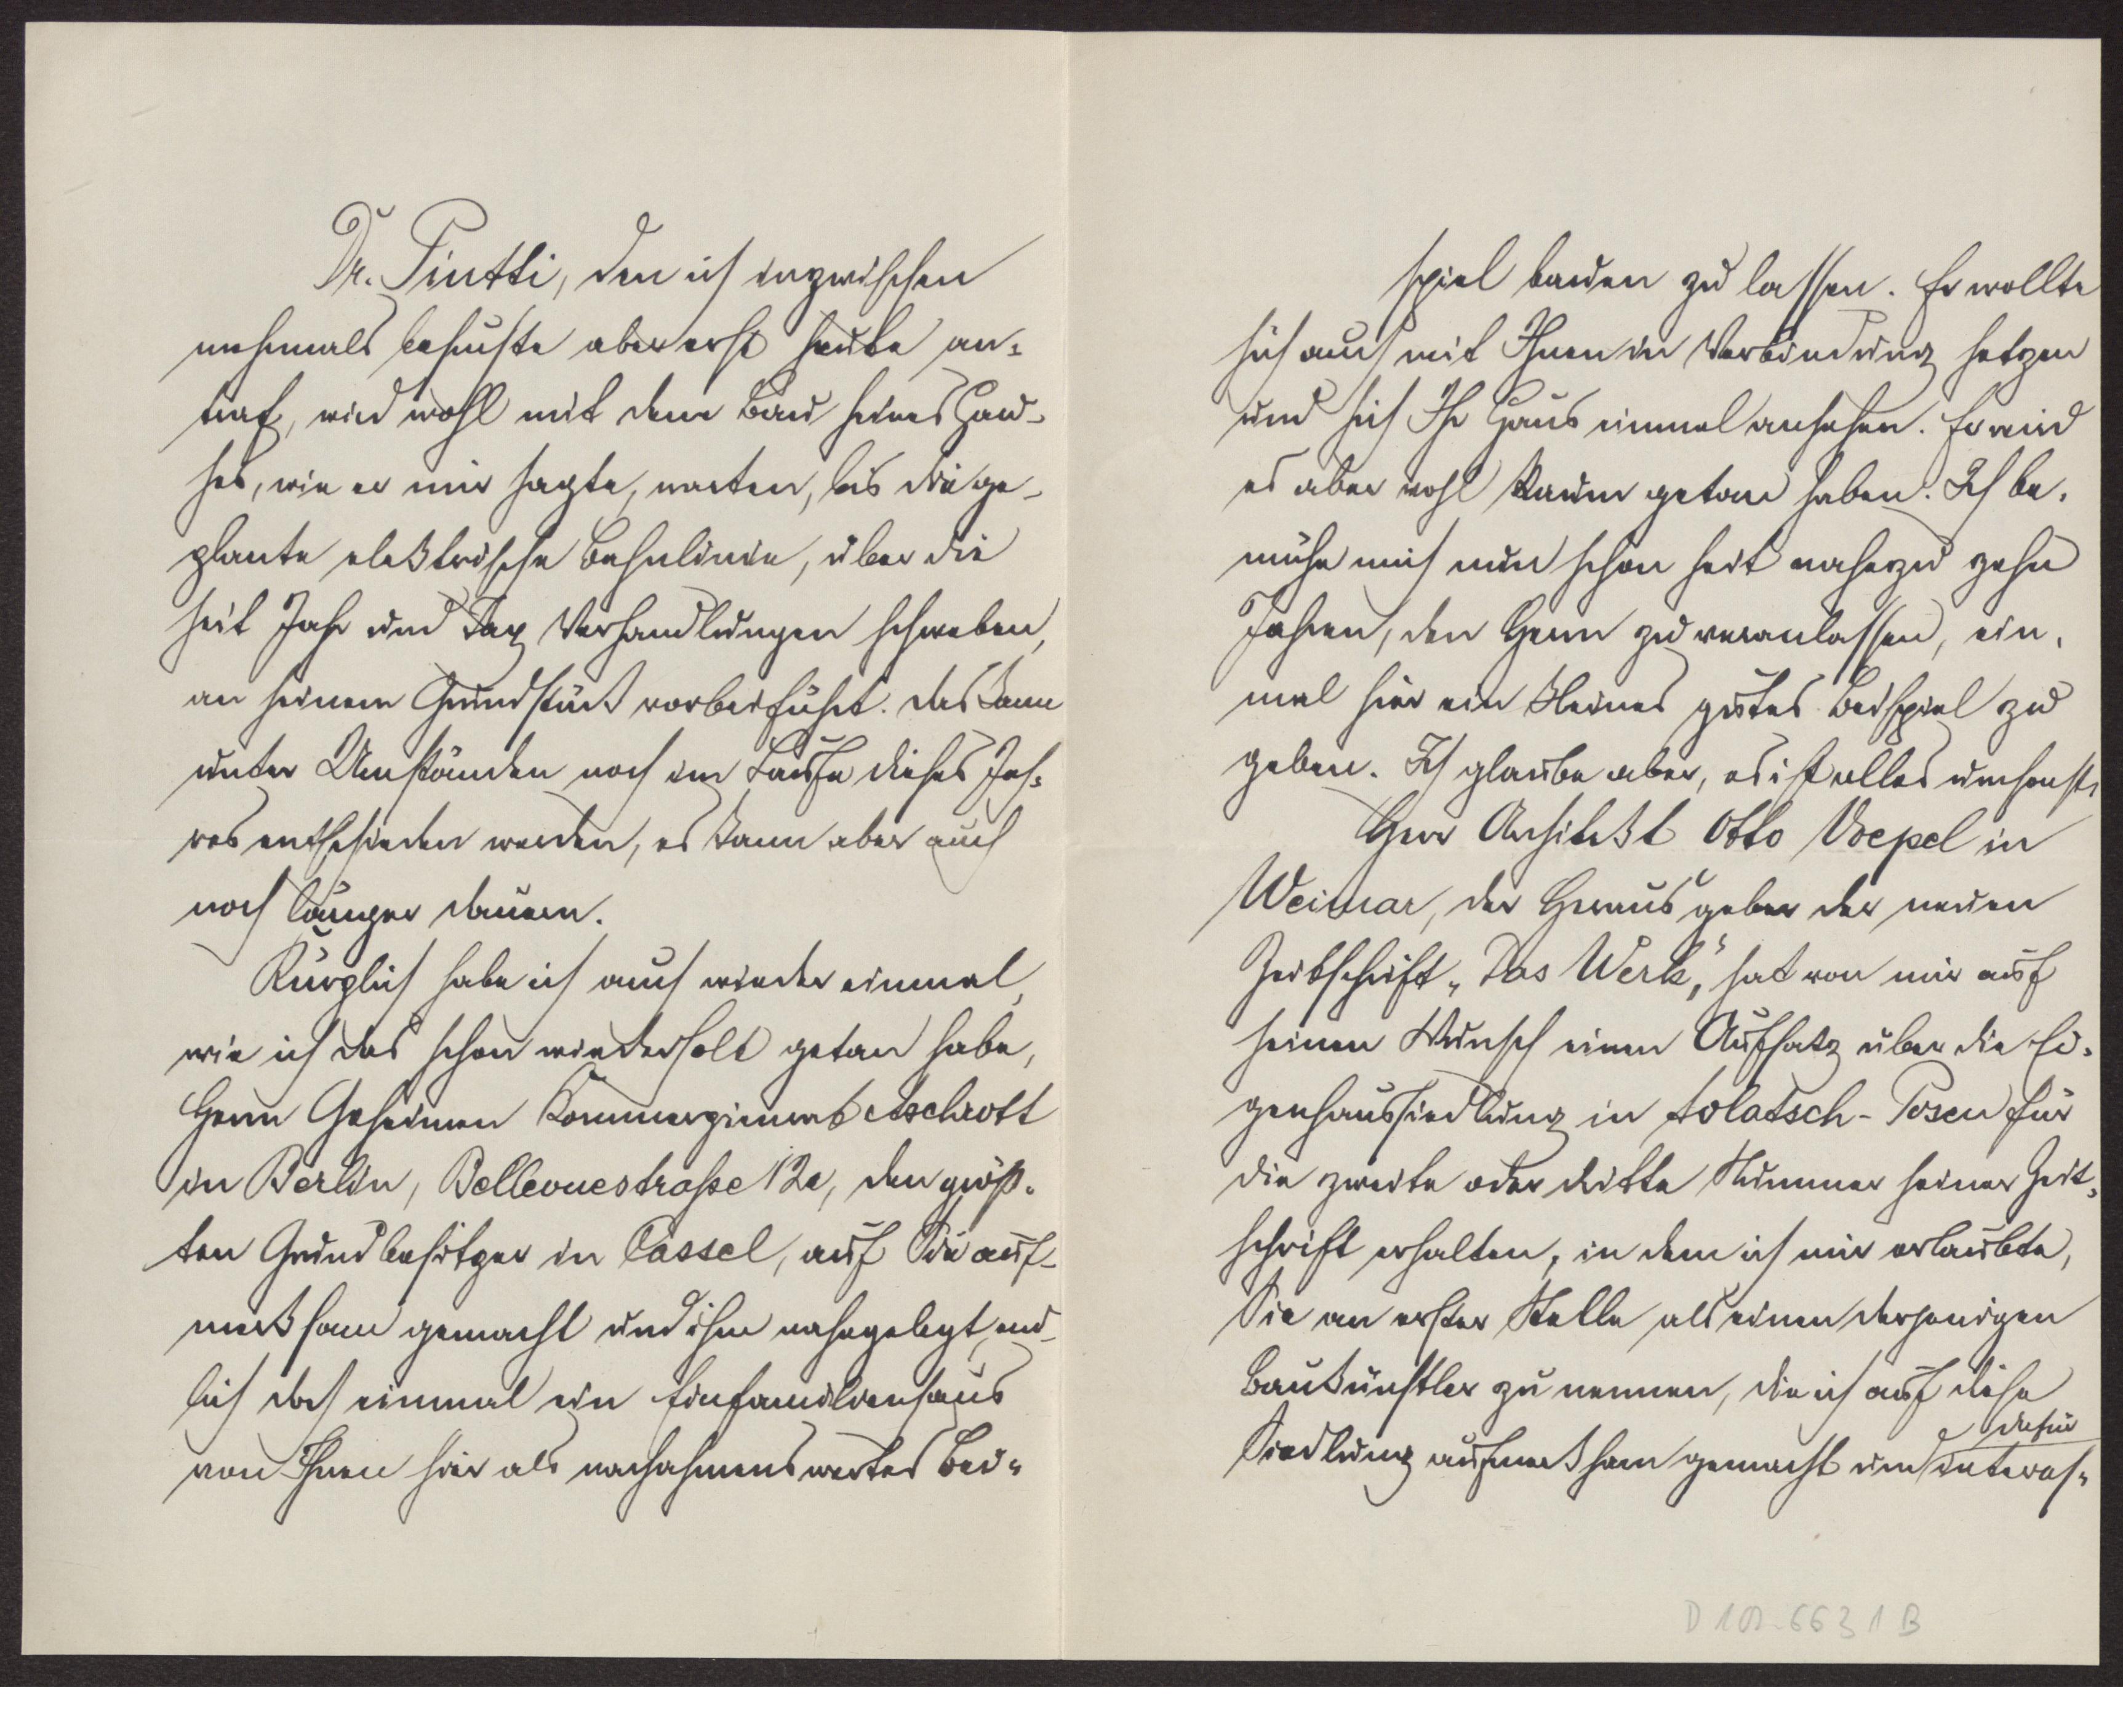 Dr. Piutti, den ich inzwischen
mehrmals besuchte aber erst heute an-
traf, wird wohl mit dem Bau seines Hau-
ses, wie er mir sagte, warten, bis die ge-
plante elektrische Bahnlinie, über die
seit Jahr und Tag Verhandlungen schweben,
an seinem Grundstück vorbeiführt. Das kann
unter Umständen noch im Laufe dieses Jah-
res entschieden werden, es kann aber auch
noch länger dauern.
Kürzlich habe ich auch wieder einmal,
wie ich das schon wiederholt getan habe,
Herrn Geheimen Kommerzienrat Aschrott
in Berlin, Bellevuestraße 12a, den größ-
ten Grundbesitzer in Cassel, auf Sie auf-
merksam gemacht und ihm nahegelegt, end-
lich doch einmal ein Einfamilienhaus
von Ihnen hier als nachahmenswertes Bei-
spiel bauen zu lassen. Er wollte
sich auch mit Ihnen in Verbindung setzen
und sich Ihr Haus einmal ansehen. Er wird
es aber wohl kaum getan haben. Ich be-
mühe mich nun schon seit nahezu zehn
Jahren, den Herrn zu veranlassen, ein-
mal hier ein kleines gutes Beispiel zu
geben. Ich glaube aber, es ist alles umsonst.
Herr Architekt Otto Voepel in
Weimar, der Herausgeber der neuen
Zeitschrift „Das Werk“, hat von mir auf
seinen Wunsch einen Aufsatz über die Ei-
genhaussiedlung in Solatsch-Posen für
die zweite oder dritte Nummer seiner Zeit-
schrift erhalten, in dem ich mir erlaubte,
Sie an erster Stelle als einen derjenigen
Baukünstler zu nennen, die ich auf diese
dafür
Siedlung aufmerksam gemacht und interes-
D 102-6631 B